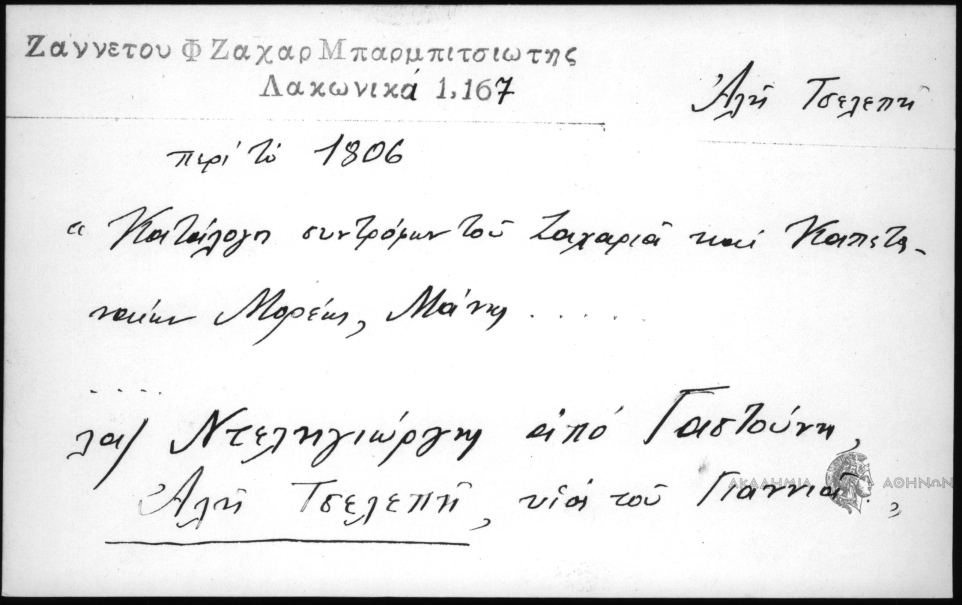 Ζαννετου Φ Ζαχαρ Μπαρμπιτσιωτης
Λακωνικά 1,167
Ἀλῆ Τσελεπῆ
περὶ τὸ 1806
« Κατάλογη συντρόφων τοῦ Ζαχαριᾶ καί Καπετα-
ναίων Μορέως, Μάνης . . . . . .
. . . . .
λα) Ντεληγιώργης ἀπό Γαστούνη,
Ἀλῆ Τσελεπῆ, υἱός τοῦ Γιαννιᾶ . ,
ΑΚΑΔΗΜΙΑ ΑΘΗΝΩΝ